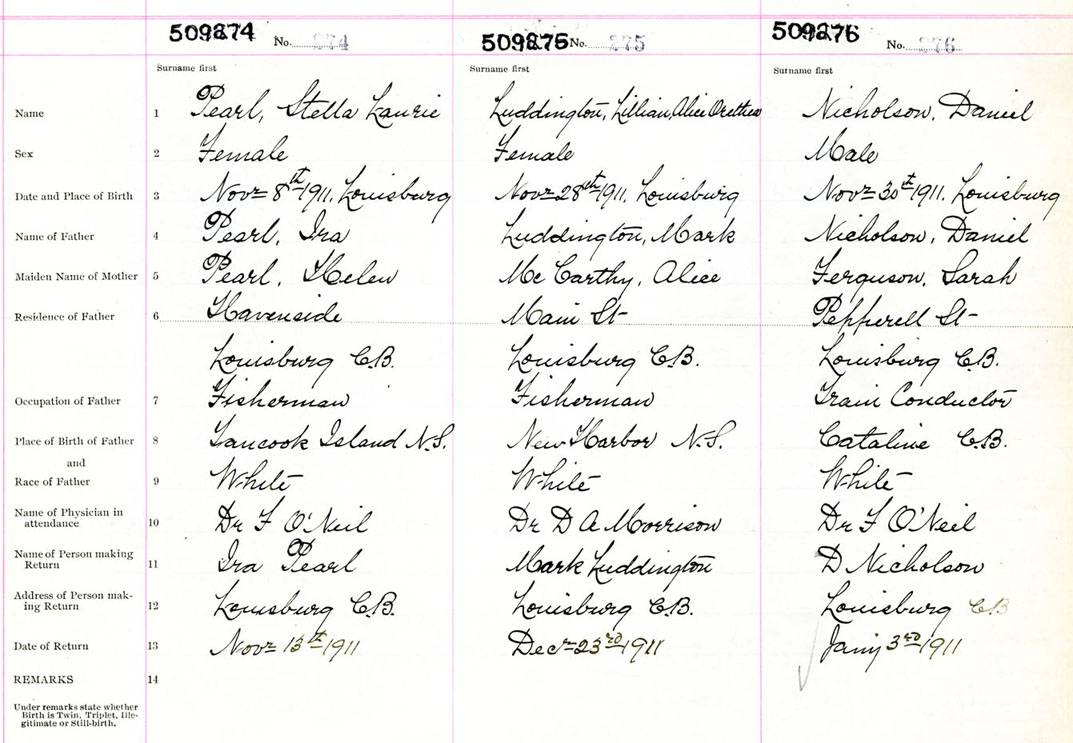 509274 No. 274 509275 No. 275 509276 No. 276
Surname first Surname first Surname first
Name 1 Pearl, Stella Laurie Luddington, Lillian, Alice Orethea Nicholson, Daniel
Sex 2 Female Female Male
Date and Place of Birth 3 Novr 8th 1911, Louisburg Novr 28th 1911, Louisburg Novr 30t 1911, Louisburg
Name of Father 4 Pearl, Ira Luddington, Mark Nicholson, Daniel
Maiden Name of Mother 5 Pearl, Helen Mc Carthy, Alice Ferguson, Sarah
Residence of Father 6 Havenside Main St Pepperell St
Louisburg C.B. Louisburg C.B. Louisburg C.B.
Occupation of Father 7 Fisherman Fisherman Train Conductor
Place of Birth of Father 8 Tancook Island N.S. New Harbor N.S. Cataline C.B.
and
Race of Father 9 White White White
Name of Physician in
attendance 10 Dr F O'Neil Dr D A Morrison Dr F O'Neil
Name of Person making
Return 11 Ira Pearl Mark Luddington D Nicholson
Address of Person mak-
ing Return 12 Louisburg C.B. Louisburg C.B. Louisburg C B
Date of Return 13 Novr 13t 1911 Decr 23rd 1911 Jany 3rd 1911
REMARKS 14
Under remarks state whether
Birth is Twin, Triplet, Ille-
gitimate or Still-birth.